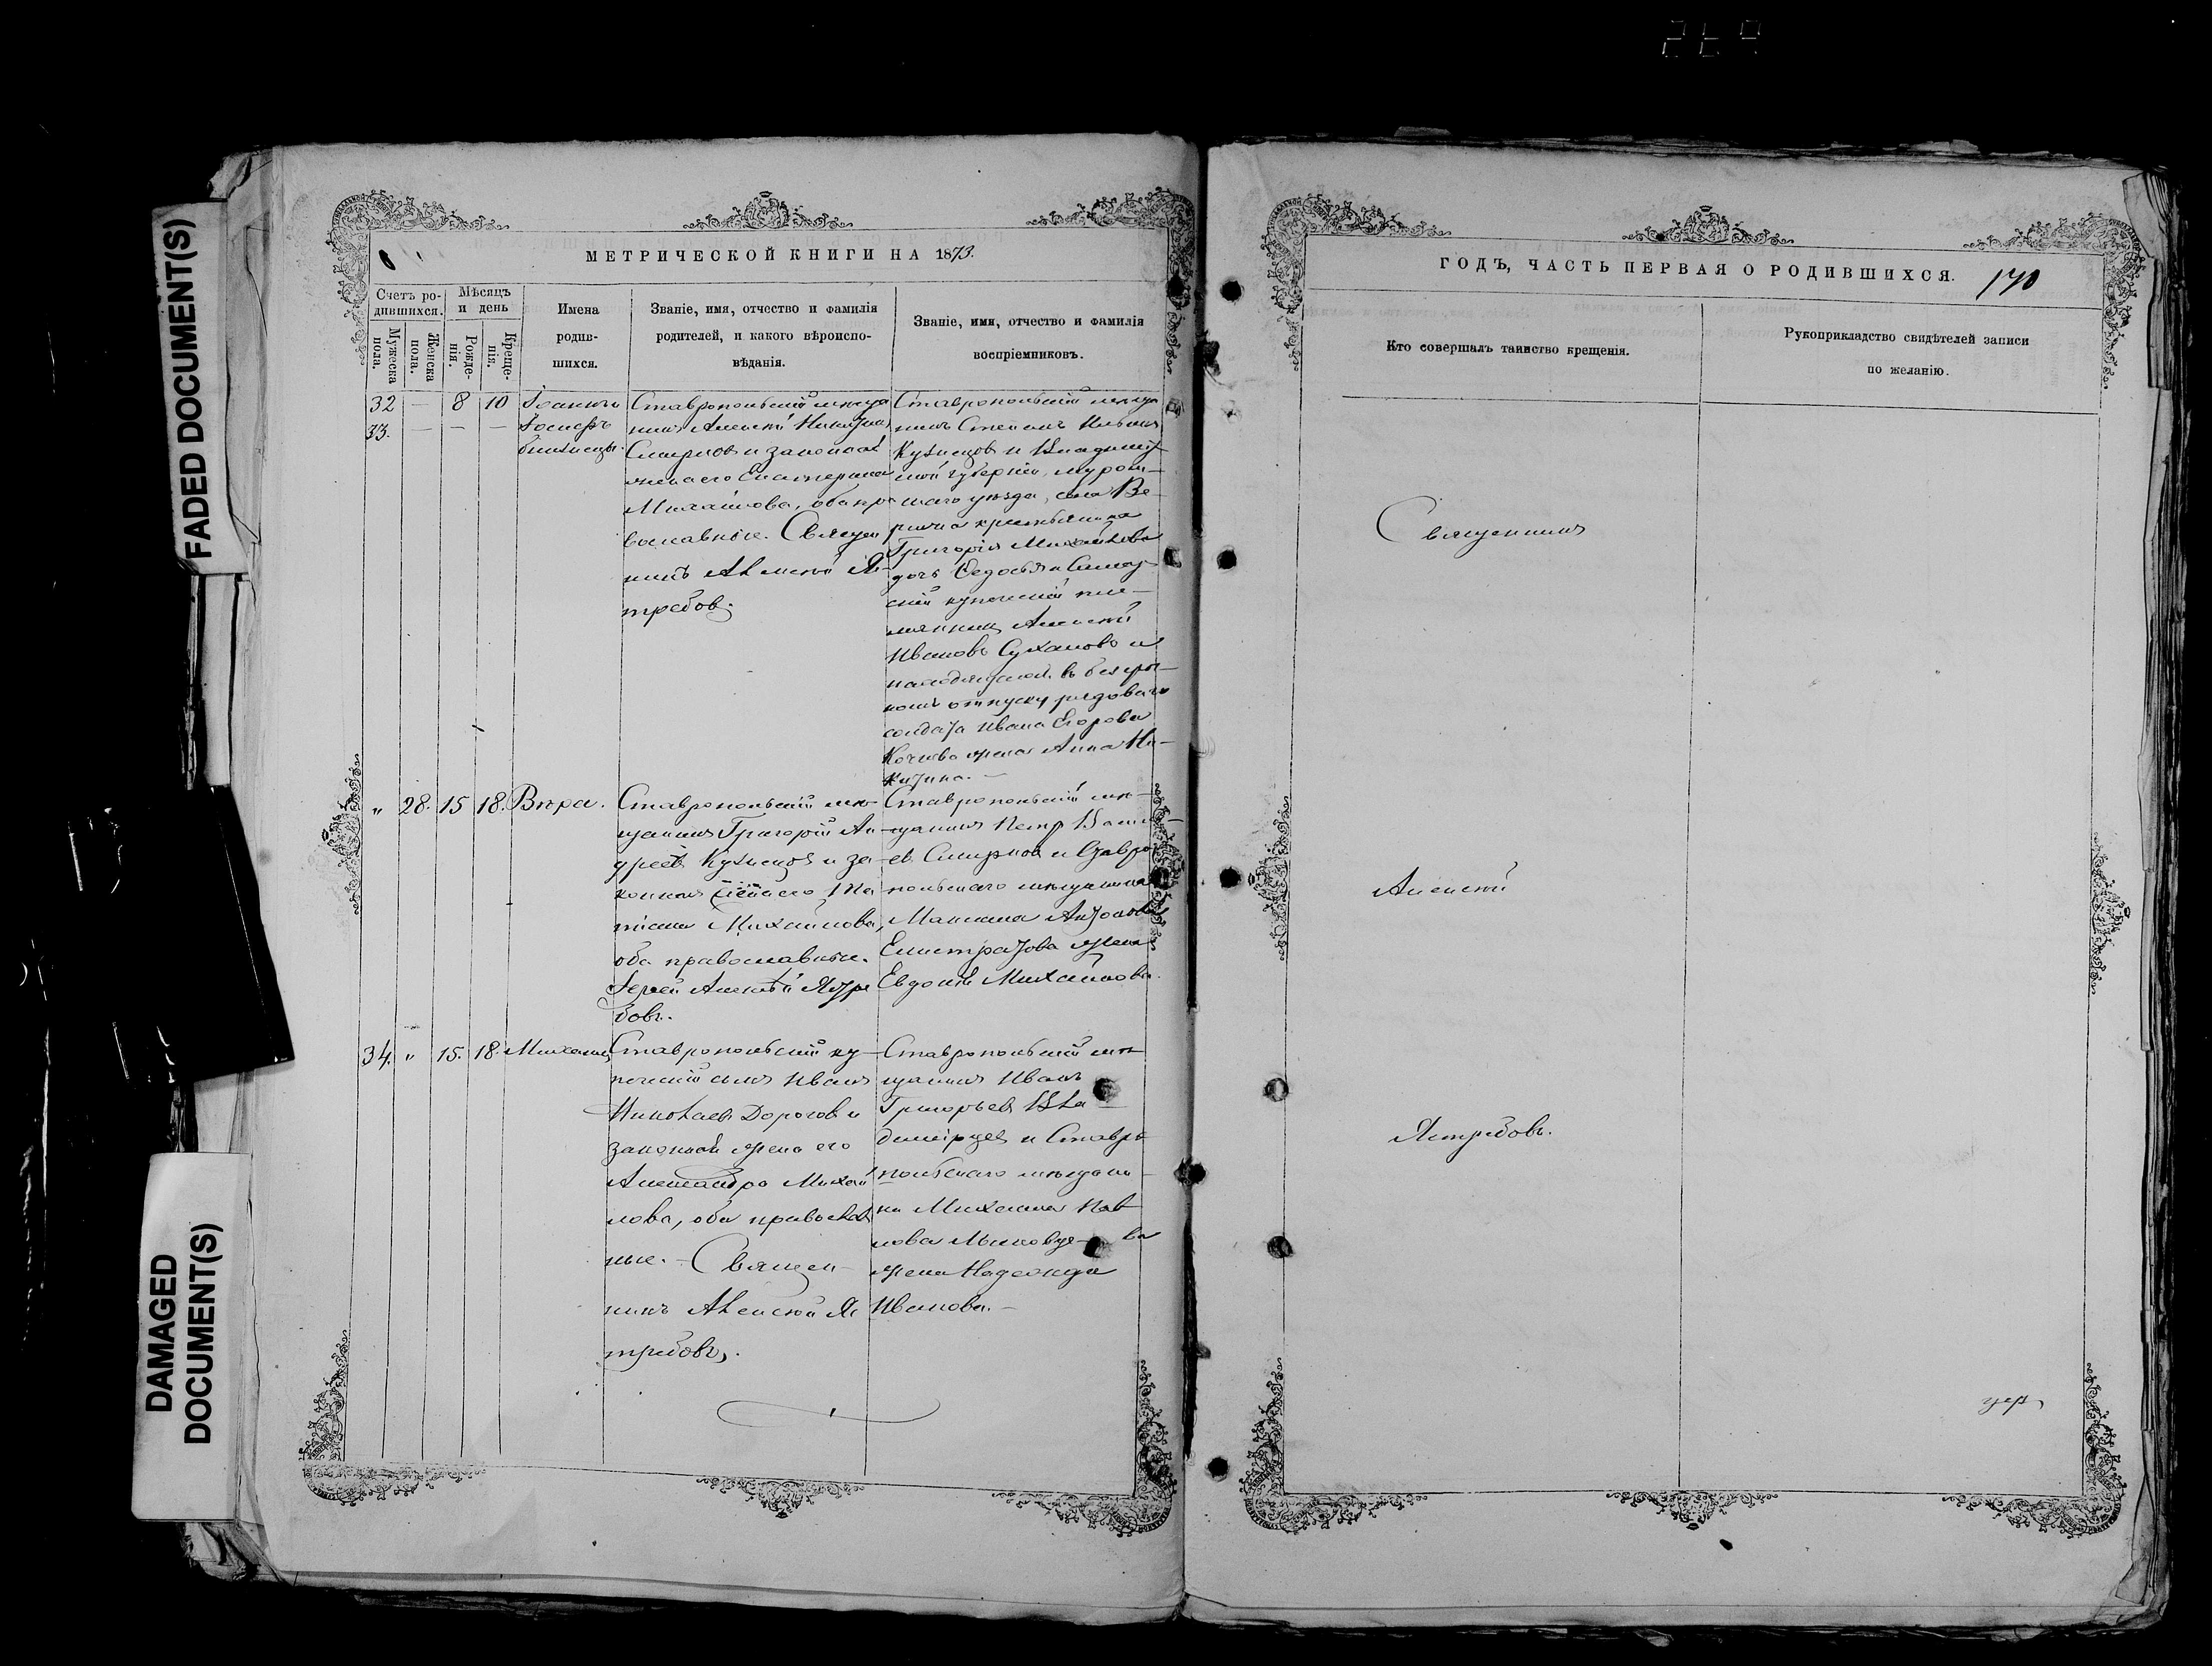 FADED DOCUMENT(S)
DAMAGED
DOCUMENT(S)
МЕТРИЧЕСКОЙ КНИГИ НА 1873.
Счетъ ро-
дившихся.
Мужеска
пола.
Женска
пола.
Мѣсяцъ
и день
Рожде-
нія.
Креще-
нія.
Имена
родив-
шихся.
Званіе, имя, отчество и фамилія
родителей, и какого вѣроиспо-
вѣданія.
Званіе, имя, отчество и фамилія
воспріемниковъ.
32 — 8 10 Іоаннъ и
33. — — — Іосифъ
близнецы.
Ставропольскій мѣща
нинъ Алексѣй Никитин
Смирнов и законная
жена его Екатерина
Михайлова, оба пра
вославные. Священ
никъ Алексѣй Яс-
требов.
Ставропольскій мѣща
нинъ Степанъ
Кузнецов и Владимір
ской губерніи, муром-
скаго уѣзда, села
крестьянина
Григорія Михайлова
дочь Ѳедосья и
купеческій пле-
мянник Алексѣй
Ивановъ Сухановъ и
находящагося въ безсро
номъ отпуску рядоваго
солдата Ивана Егорова
жена Анна Ни-
китина. —
„ 28. 15 18. Вѣра.
Ставропольскій мѣ-
щанинъ Григорій Ан-
дреев Кузнецов и за-
конная жена его Та
тіана Михайлова,
оба православные.
Іерей Алексѣй Ястре
бовъ.
Ставропольскій мѣ-
щанинъ Петр Василь-
ев Смирнов и Ставро
польскаго мѣщанина
Максима Антонова
Елистратова жена
Евдокія Михайлова.
34. „ 15. 18. Михаил
Ставропольскій ку-
печескій сынъ Иванъ
Николаев Дорогов и
законная жена его
Александра Михай
лова, оба православ
ные. — Священ-
никъ Алексѣй Яс
требовъ.
Ставропольскій мѣ
щанинъ Иванъ
Григорьев Вла-
димірцев и Ставро
польскаго мѣщани-
на Михаила Пав
лова
жена Надежда
Иванова. —
ГОДЪ, ЧАСТЬ ПЕРВАЯ О РОДИВШИХСЯ. 170
Кто совершалъ таинство крещенія.
Рукоприкладство свидѣтелей записи
по желанію.
Священникъ
Алексѣй
Ястребовъ.